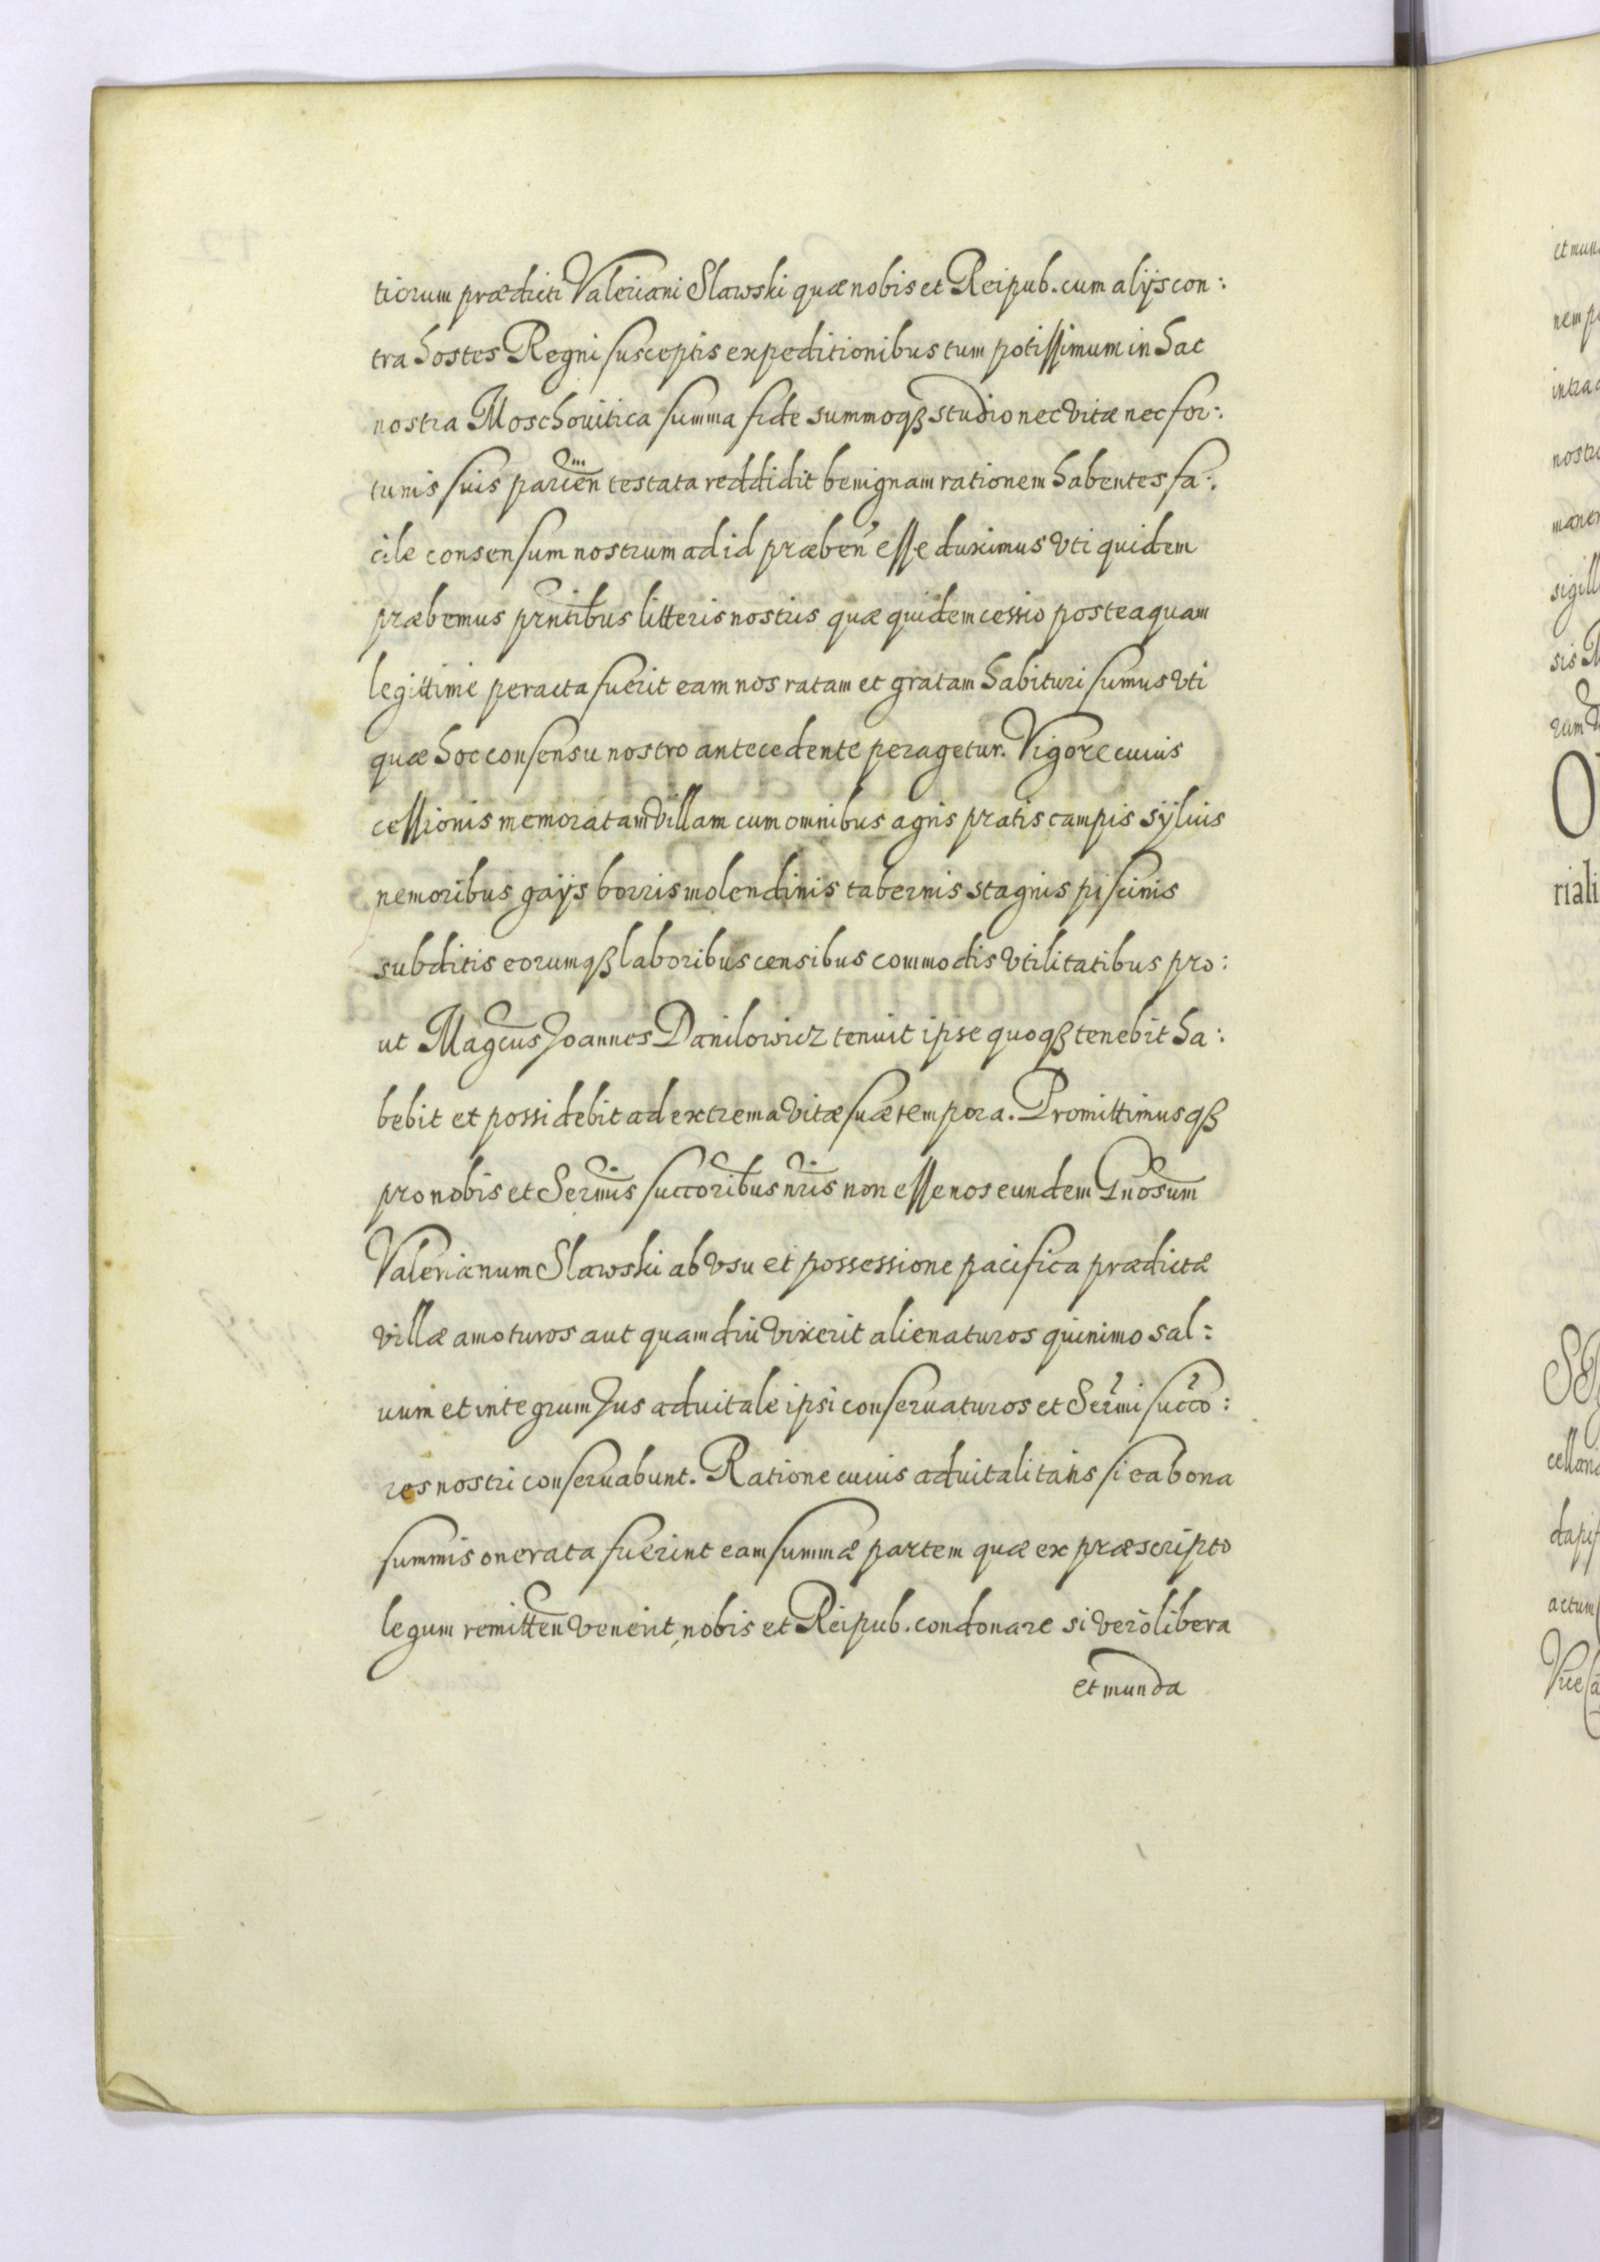 tiorum prædicti Valeriani Slawski quæ nobis et Reipub. cum alijs con:
tra hostes Regni susceptis expeditionibus tum potissimum in hac
nostra Moschouitica summa fide summoqß studio nec vitæ nec for:
tunis suis parcen testata reddidit benignam rationem habentes fa:
cile consensum nostrum ad id præben esse duximus vti quidem
præbemus prntibus litteris nostris quæ quidem cessio posteaquam
legittime peracta fuerit eam nos ratam et gratam habituri sumus vti
quæ hoc consensu nostro antecedente peragetur. Vigore cuius
cessionis memoratam villam cum omnibus agris pratis campis sÿluis
nemoribus gaÿs borris molendinis tabernis stagnis piscinis
subditis eorumqß laboribus censibus commodis vtilitatibus pro:
ut Magcus Joannes Danilowicz tenuit ipse quoqß tenebit ha:
bebit et possidebit ad extrema vitæ suæ tempora. Promittimusqß
pro nobis et Sermis succoribus nris non esse nos eundem Gnosum
Valerianum Slawski ab vsu et possessione pacifica prædictæ
villæ amoturos aut quam diu vixerit alienaturos quinimo sal:
uum et integrum Jus aduitale ipsi conseruaturos et Sermi succo:
res nostri conseruabunt. Ratione cuius aduitalitatis si ea bona
summis onerata fuerint eam summæ partem quæ ex præscripto
legum remitten venerit, nobis et Reipub. condonare si verò libera
et munda
et mun
nem p
intra
nostr
sigill
sis M
rum
O
riali
cellan
dapif
actum